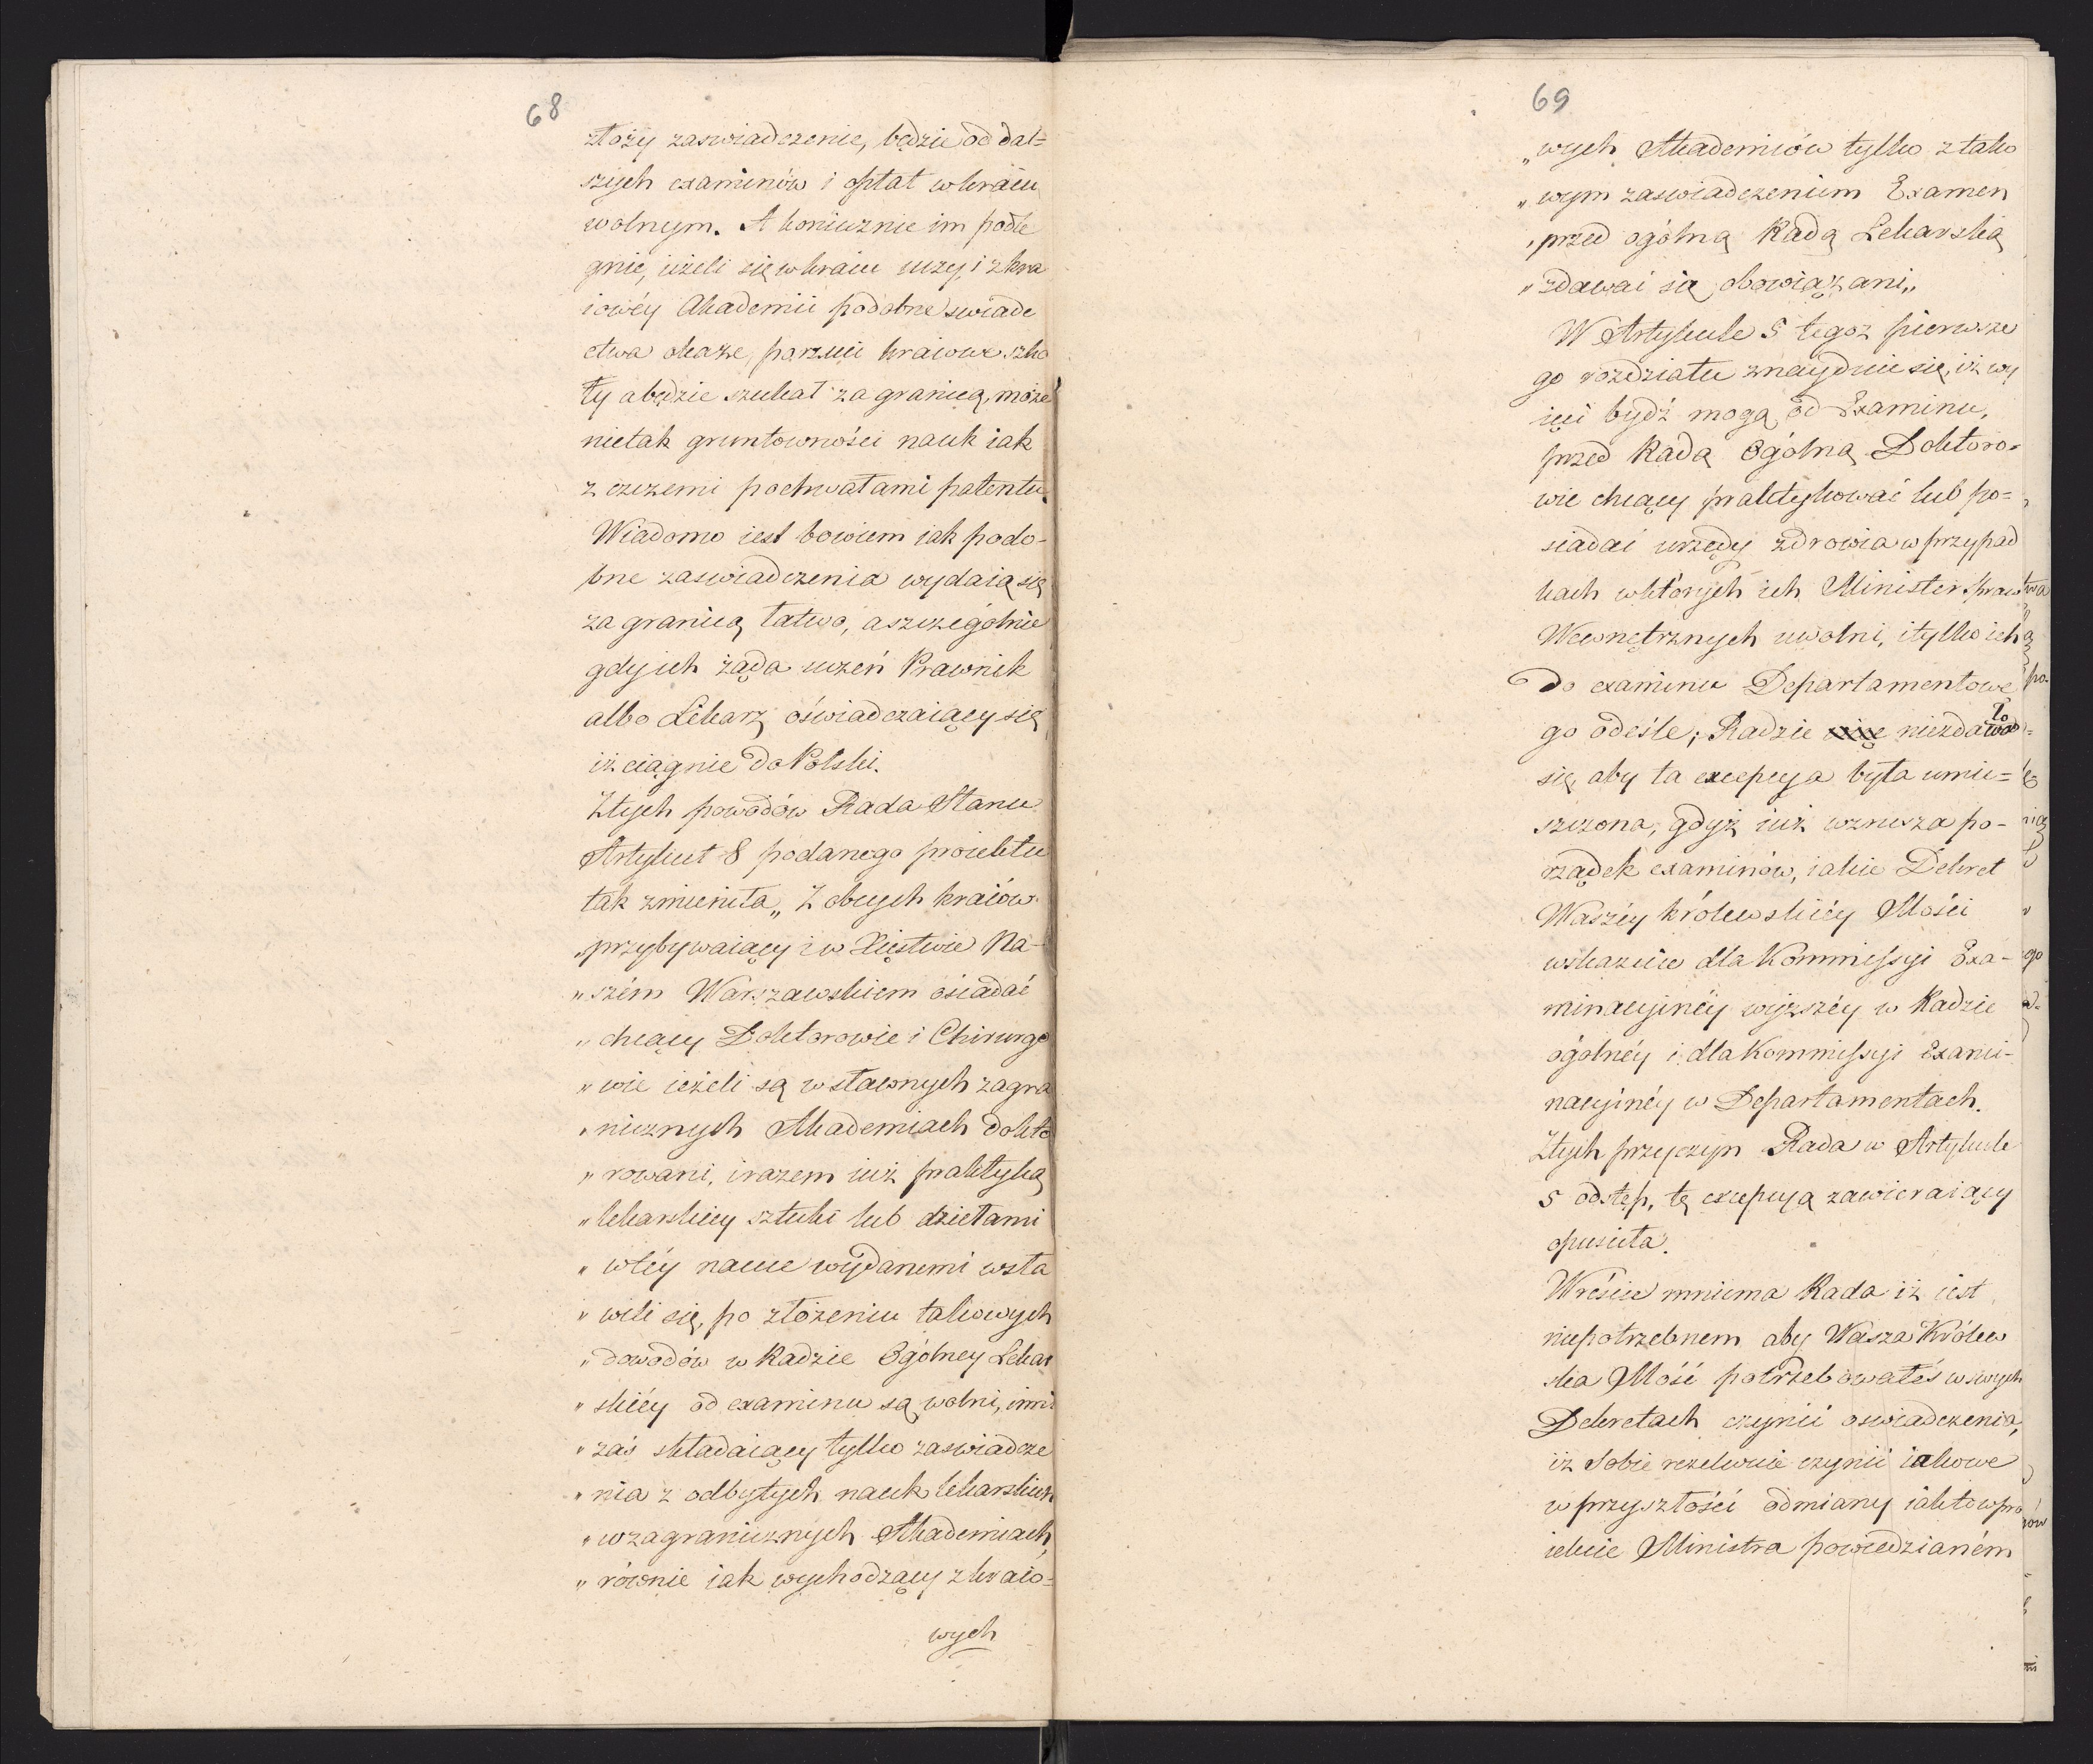 68
złoży zaswiadczenie, będzie od dal=
szych examinów i opłat w kraiu
wolnym. A koniecznie im podle
gnie, ieżeli się w kraiu uczy, i z kra
iowéy Akademii podobne swiade
ctwa okaże, porzuci kraiowe szko
ły a będzie szukał za granicą, może
nietak gruntowności nauk iak
z czczemi pochwałami patentu.
Wiadomo iest bowiem iak podo-
bne zaswiadczenia wydaią się
za granicą łatwo, a szczególnie
gdy ich żąda uczeń Prawnik
albo Lekarz oświadczaiący się
iż ciągnie do Polski.
Z tych powodów Rada Stanu
Artykuł 8 podanego proiektu
tak zmieniła „ Z obcych kraiów
„ przybywaiący i w Xięstwie Na-
„ szém Warszawskiem osiadać
„ chcący Doktorowie i Chirurgo
„ wie ieżeli są w sławnych zagra
„ nicznych Akademiach dokto
„ rowani, i razem iuż praktyką
„ lekarskiey sztuki lub dziełami
„ w téy nauce wydanemi wsła
„ wili się, po złożeniu takowych
„ dowodów w Radzie Ogólney Lekar
„ skiéy od examinu są wolni, inni
„ zaś składaiący tylko zaswiadcze
„ nia z odbytych nauk lekarskich
„ w zagranicznych Akademiach,
„ równie iak wychodzący z kraio-
wych
69
„ wych Akademiów tylko z tako
„ wym zaswiadczeniem Examen
„ przed ogólną Radą Lekarską
„ zdawać są obowiązani „
W Artykule 5 tegoż pierwsze
go rozdziału znayduie się, iż wy
ięci bydź mogą od Examinu,
przed Radą Ogólną Doktoro-
wie chcący praktykować lub po=
siadać urzędy zdrowia w przypad
kach w których ich Minister Spraw
Wewnętrznych uwolni, i tylko ich
do examinu Departamentowe
go odeśle; Radzie niezdało
się aby ta excepcya była umie=
szczona, gdyż iuż wzrusza po-
rządek examinów, iakie Dekret
Waszéy królewskiéy Mości
wskazuie dla Kommissyi Exa-
minacyinéy wyższéy w Radzie
ogólnéy i dla Kommissyi Exami-
nacyinéy w Departamentach.
Z tych przyczyn Rada w Artykule
5 odstęp, tę excepcyą zawieraiący
opuściła.
Wreście mniema Rada iż iest
niepotrzebnem aby Wasza Królew
ska Mość potrzebowałeś w swych
Dekretach czynić oswiadczenia,
iż Sobie rezerwuie czynić iakowe
w przyszłości odmiany iak to w pro
iekcie Ministra powiedzianém